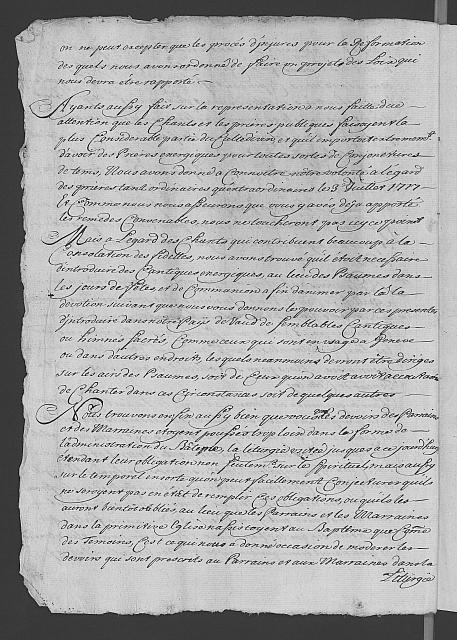 on ne peut excepter que les procés d'injures pour la Reformation
des quels nous avons ordonné de faire un projet des Loix qui
nous devra etre rapporté.
Ayants aussy fait sur la representation a nous faitte due
attention que les Chants et les prieres publiques faisoyent la
plus Considerable partie du Culte divin, et qu'il importe extremem.t
d'avoir des Prieres energiques pour toutes sortes de Conjonctures
de tems, Nous avons donné a Connoitre notre volonté a legard
des prieres tant ordinaires qu'extraordinaires le 3.e Juillet 1717
Et Comme nous nous assurons que vous y avés deja apporté
les remedes Convenables, nous ne toucherons pas icy ce point
Mais a Legard des Chants qui contribuent beaucoup à la
Consolation des fidelles, nous avons trouvé quil etoit necessaire
d'introduire des Cantiques energiques, au lieu des Psaumes dans
les jours de fetes et de Communion a fin d'animer par là la
devotion suivant que nous vous donnons le pouvoir par ces presentes
d'introduire dans nôtre Païs de Vaud de semblables Cantiques
ou himnes sacrés, Comme ceux qui sont en usage a Geneve
ou dans d'autres endroits, les quels neanmoins devront être dirigés
sur les airs des Psaumes, soit de Ceux qu'on avoit accoutumé
de Chanter dans ces Circonstances soit de quelques autres
Nous trouvons en fin aussy bien que vous que les devoirs des Parrains
et des Marraines etoyent poussés trop loin dans la forme de
l'administration du Batême, la liturgie usitée jusques a ce jourdhuy
etendant leur obligation non seulem.t sur le Spirituel mais aussy
sur le temporel en sorte qu'on peut facilement Conjecturer quils
ne seroyent pas en état de remplir Ces obligations, ou quils les
auront bientot oubliés, au lieu que les Parrains et les Marraines
dans la primitive Eglise n'assistoyent au Baptême que Comme
des Temoins, C'est ce qui nous a donné occasion de moderer les
devoirs qui sont prescrits au Parrains et aux Marraines dans la
Liturgie